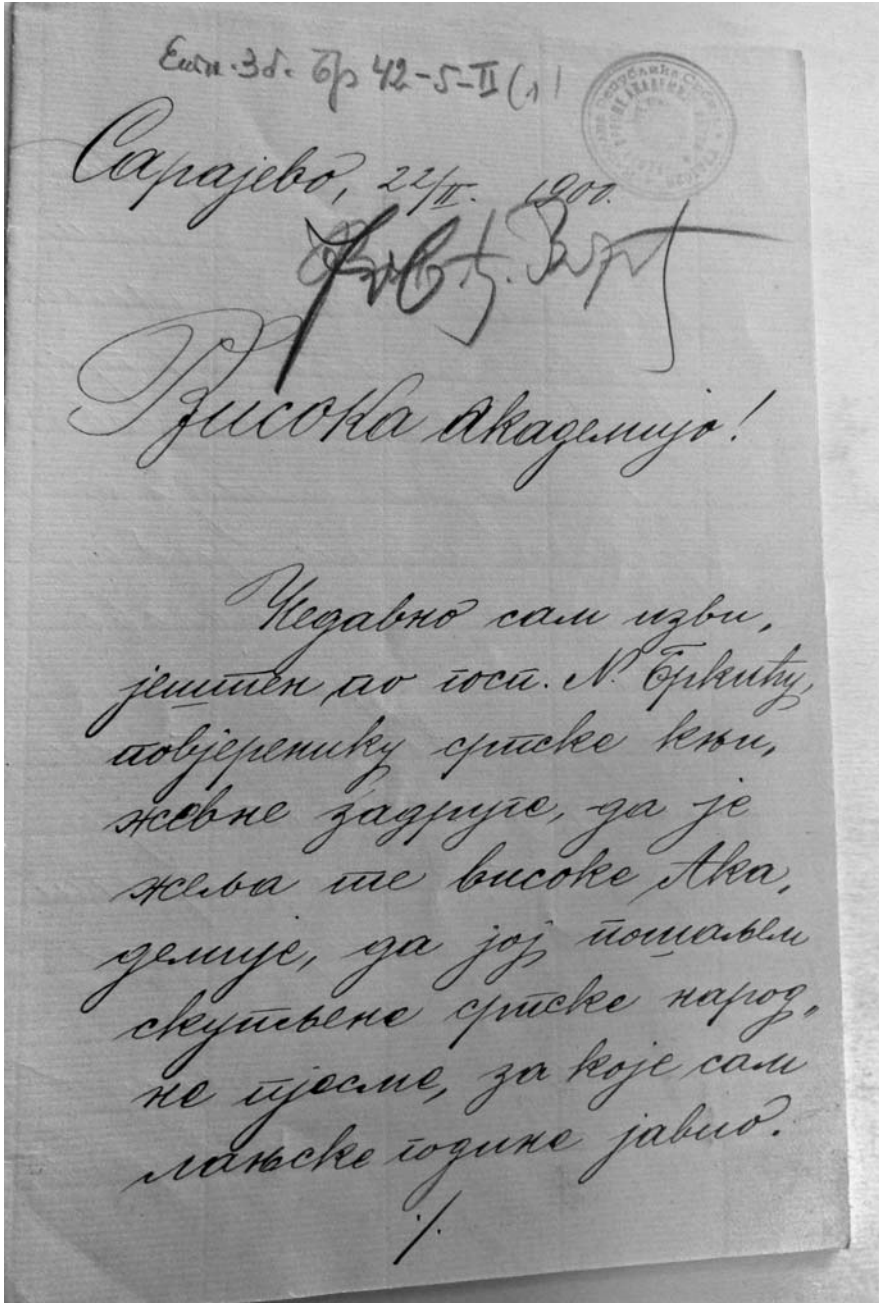 Етн. Зб. Бр 42-5-II (1)
Сарајево, 22/II. 1900.
Висока Академијо!
Недавно сам изви„
јештен по госп. N. Бркићу,
повјеренику српске књи„
жевне задруге, да је
жеља те високе Ака„
демије, да јој пошаљем
скупљене српске народ„
не пјесме, за које сам
лањске године јавио.
./.